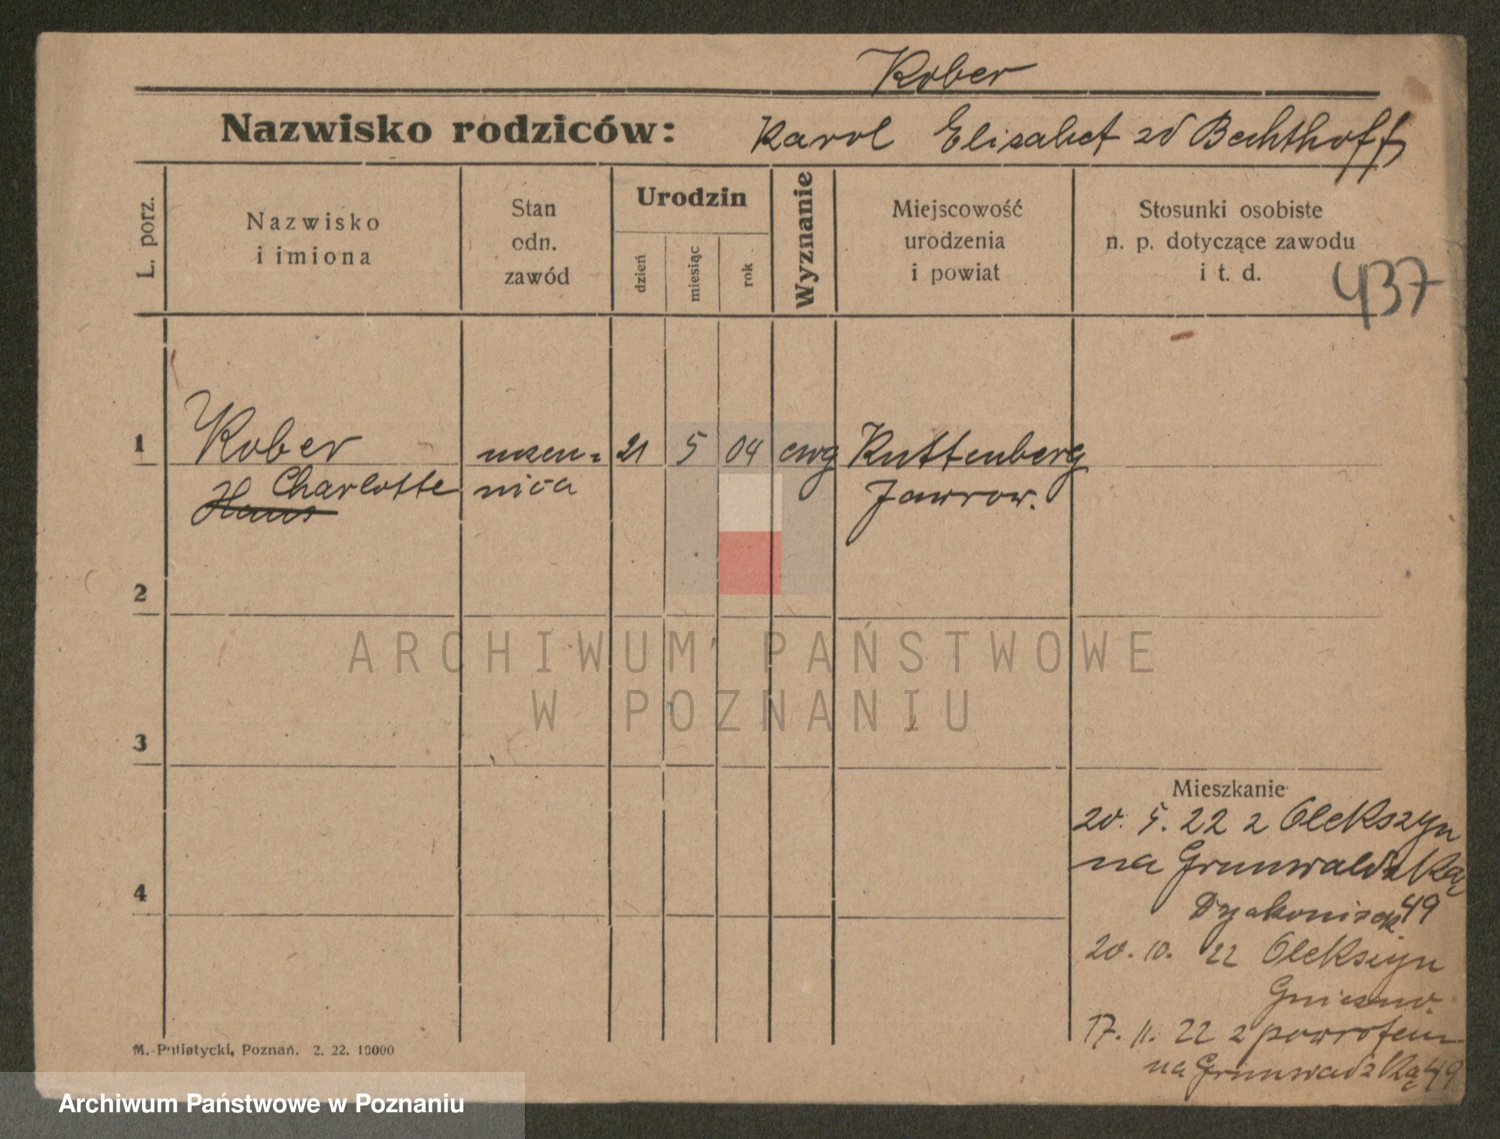 Kober
Nazwisko rodziców: Karol Elisabet zd Bechthoff
L. porz.
Nazwisko
i imiona
Stan
odn.
zawód
Urodzin
dzień
miesiąc
rok
Wyznanie
Miejscowość
urodzenia
i powiat
Stosunki osobiste
n. p. dotyczące zawodu
i t. d.
437
1 Kober uczen= 21 5 04 ewg Kuttenberg
Charlotte nica Jawrow.
Hans
2
ARCHIWUM PAŃSTWOWE
W POZNANIU
3
Mieszkanie
20. 5. 22 z Olekszyn
na Grunwaldzką
4
Dyakonisek 49
20. 10. 22 Olekszyn
Gniezno.
17. 11. 22 z powrotem
na Grunwadzką 49
M. Putiatycki, Poznań. 2. 22. 10000
Archiwum Państwowe w Poznaniu